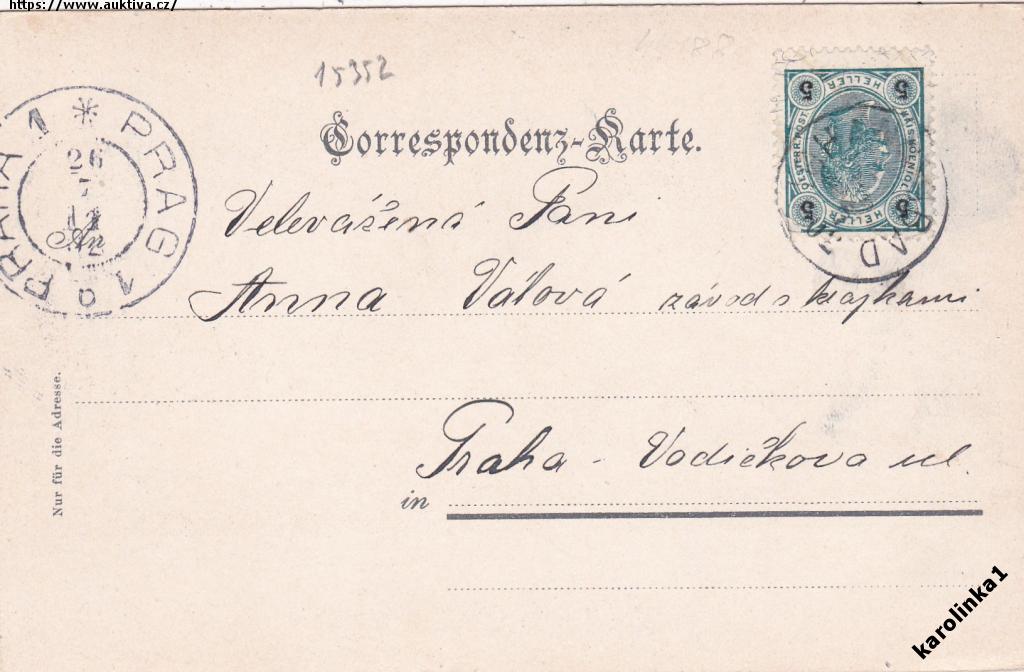 https://www.auktiva.cz/
15352
PRAG 1 * PRAHA 1
26
12
Correspondenz-Karte.
5 HELLER 5
5 HELLER 5
BAD
Velevážená Paní
Anna Válová závod s krajkami
Nur für die Adresse.
Praha - Vodičkova ul.
in
karolinka1